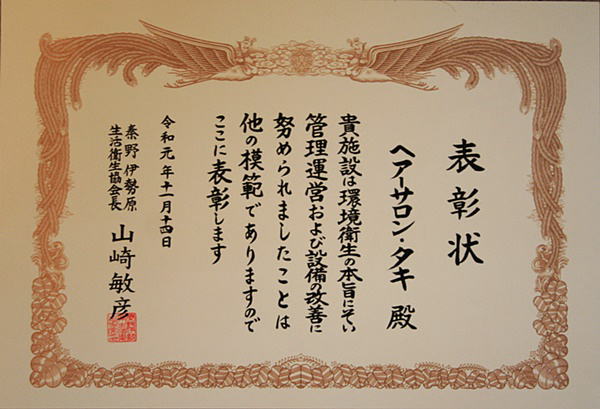 表彰状
ヘアーサロン・タキ 殿
貴施設は環境衛生の本旨にそい
管理運営および設備の改善に
努められましたことは
他の模範でありますので
ここに表彰します
令和元年十一月十四日
秦野伊勢原
生活衛生協会長 山崎敏彦